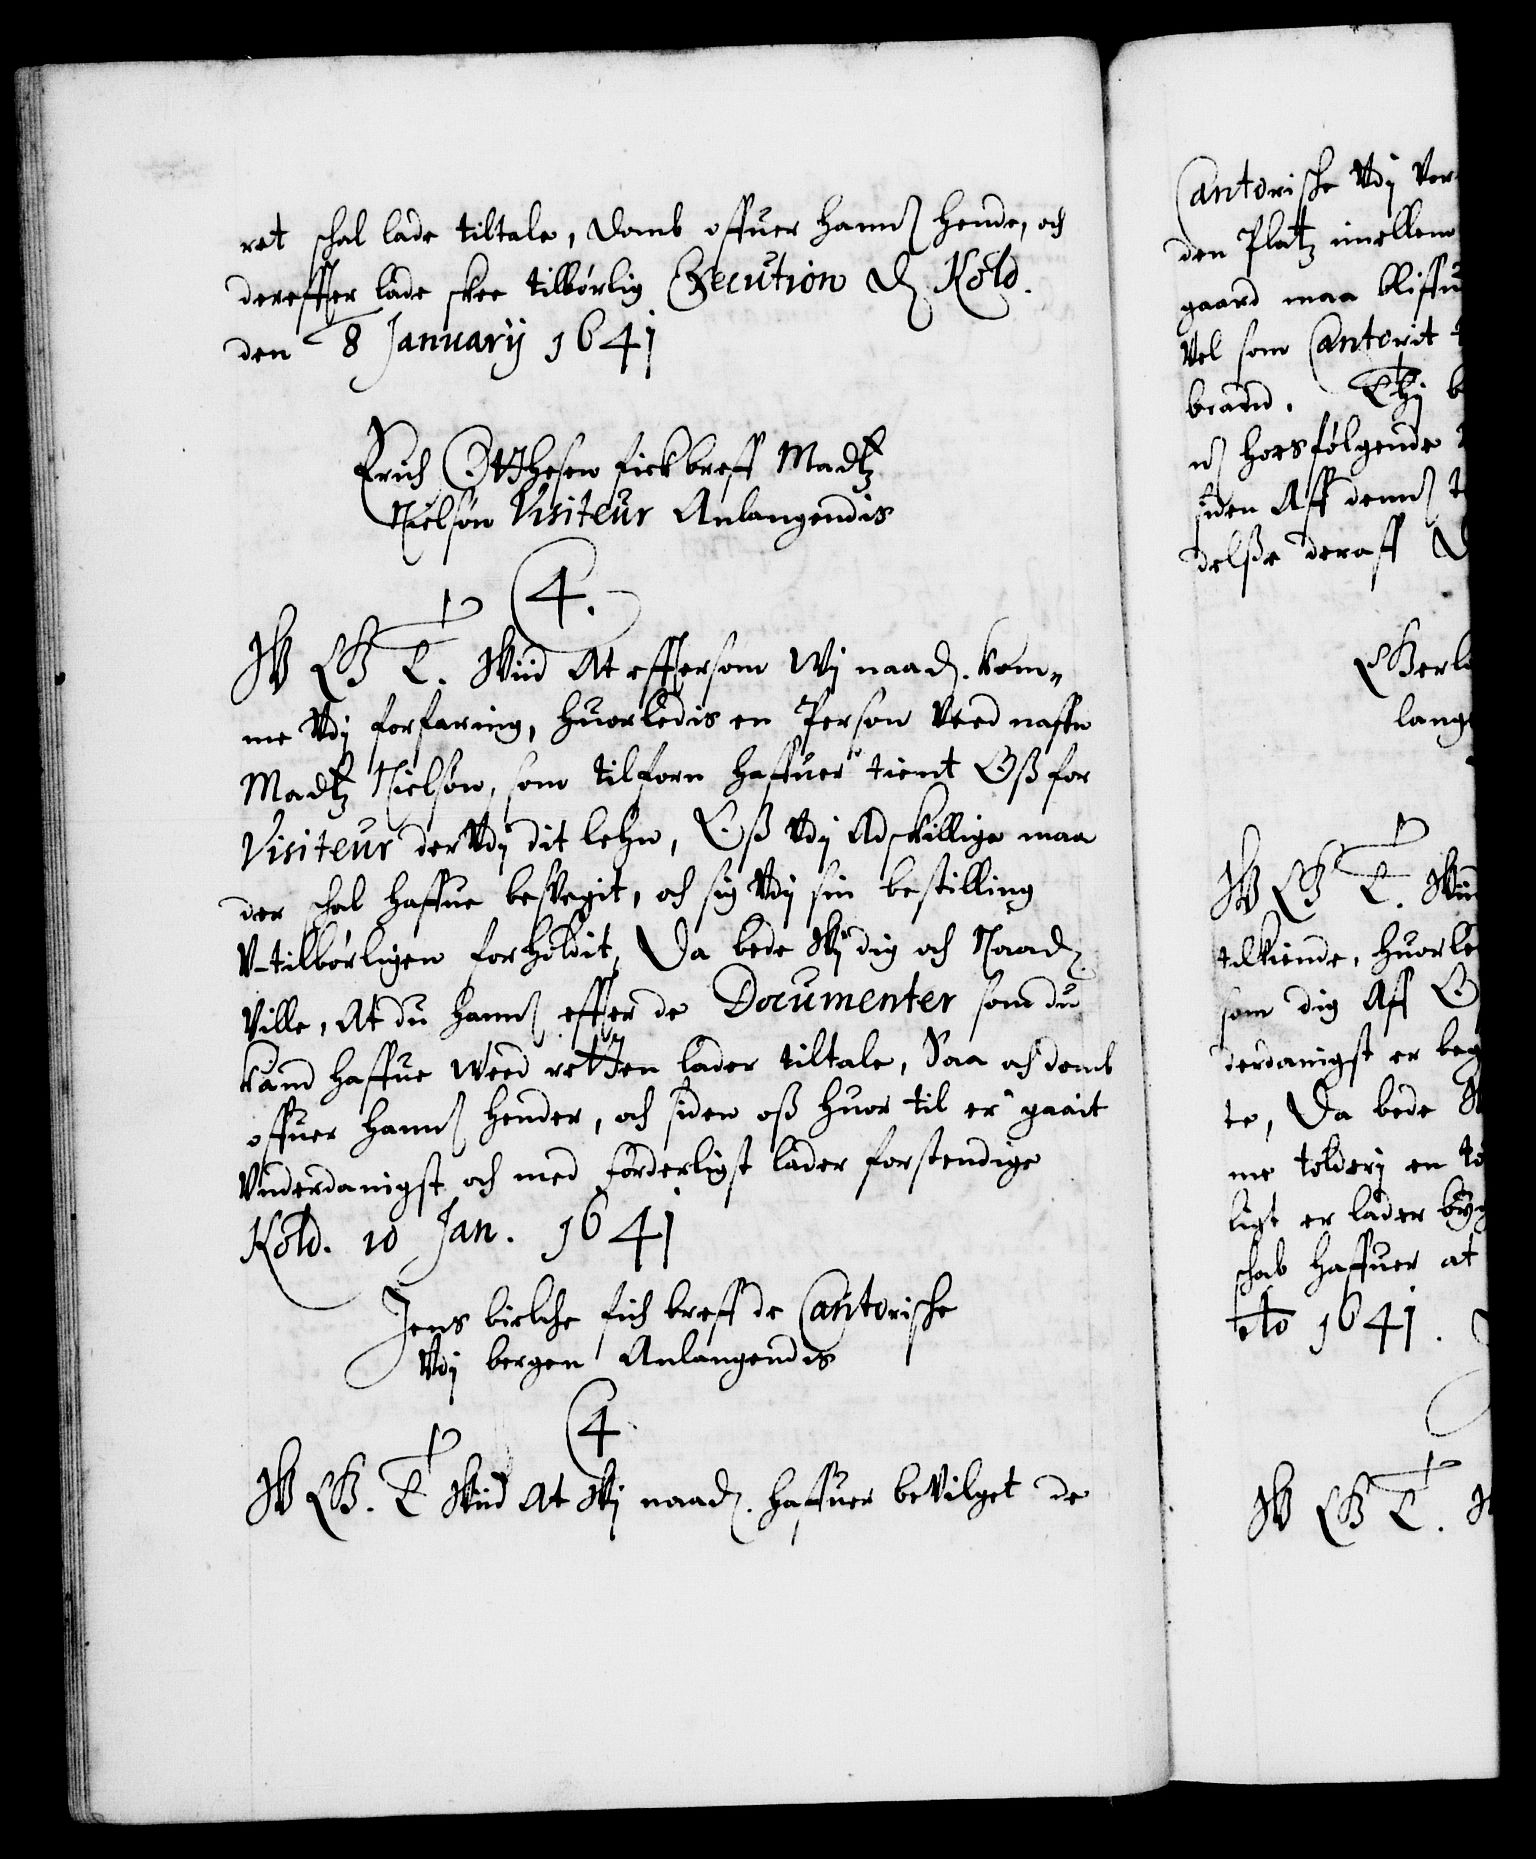 ret schal lade tiltale, Domb offuer hanns hende, och
derefter lade skee tilbørlig Execution d. Kold.
den 8 Januarij 1641
Erich Otthesen fick breff Madtz
Nielsøn Visiteur Anlangendis
4.
W G T. Wiid At eftersom Wj naad. kom,,
me Vdj forfaring, huorledis en Person Veed naffn
Madtz Nielsøn, som tilforn haffuer tient Oß for
Visiteur der Vdj dit lehn, Oß Vdj Adskillige maa
der schal haffue besVegit, och sig Vdj sin bestilling
V-tilbørligen forholdit, Da bede Wj dig och Naad.
Ville, At du hanns efter de Documenter som du
kand haffue Weed retten lader tiltale, Saa och domb
offuer hanns hender, och siden oß huor til er gaait
Vnderdanigst och med forderligst lader forstendige
Kold. 10 Jan. 1641
Jens bielche fich breff de Cantorische
Vdj bergen Anlangendis
4
W G. T Wiid At Wj naad. haffuer beVilget de
Cantorische Vdj Ver
den Platz imellem
gaard maa bliffu
Vel som Cantorit
brand. Thj b
hosfølgende
siden Aff denns
delße deraff
lang
W G T. Wiid
tilkiende, huorle
som dig Aff
derdanigst er beg
te, Da bede
me tolderj en
ligt er lader byg
schab haffuer at
dto 1641.
W G T.